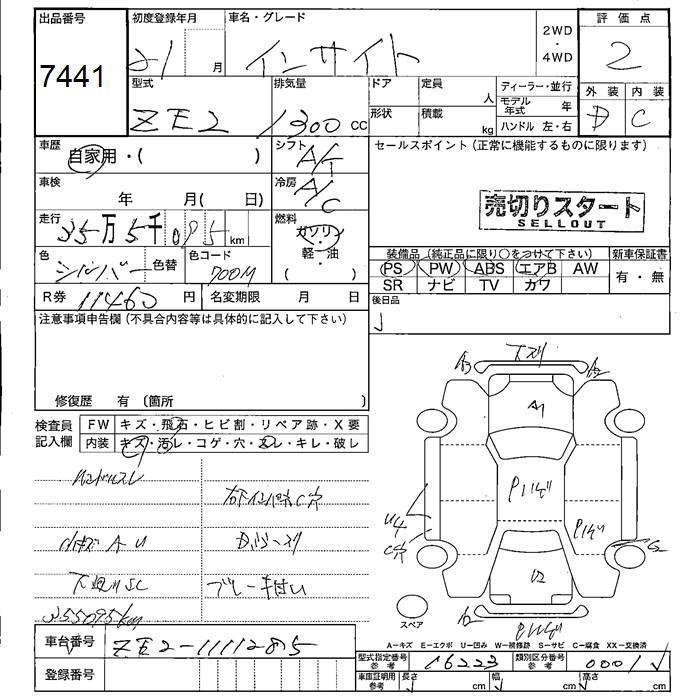 出品番号
7441
初度登録年月
21
月
車名・グレード
インサイト
2WD
・
4WD
評価点
2
型式
ZE2
排気量
1300 CC
ドア
定員
人
形状
積載
kg
ディーラー・並行
モデル年式 年
ハンドル 左・右
外装
内装
D
C
車歴
自家用・( )
シフト
A/T
セールスポイント (正常に機能するものに限ります)
車検
年 月( 日)
冷房
A/C
売切りスタート
SELLOUT
走行
35万5千095 km
燃料
ガソリン
軽・油
( )
色
シルバー
色替
色コード
700M
装備品 (純正品に限り○をつけて下さい)
新車保証書
PS PW ABS エアB AW
SR ナビ TV カワ
有・無
R券
11460 円
名変期限 月 日
後日品
注意事項申告欄 (不具合内容等は具体的に記入して下さい)
修復歴 有 〔箇所 〕
検査員
記入欄
FW キズ・飛石・ヒビ割・リペア跡・X要
内装 キズ・汚レ・コゲ・穴・スレ・キレ・破レ
ハンドルスレ
小キズ A U
下廻りSC
355095km
A3
A2
A1
U4
U2
A2
スペア
A-キズ E-エクボ U-凹み W-補修跡 S-サビ C-腐食 XX-交換済
車台番号
ZE2-1111285
登録番号
型式指定番号
参考
16223
類別区分番号
参考
0001
車庫証明用
参考
長さ cm
幅 cm
高さ cm